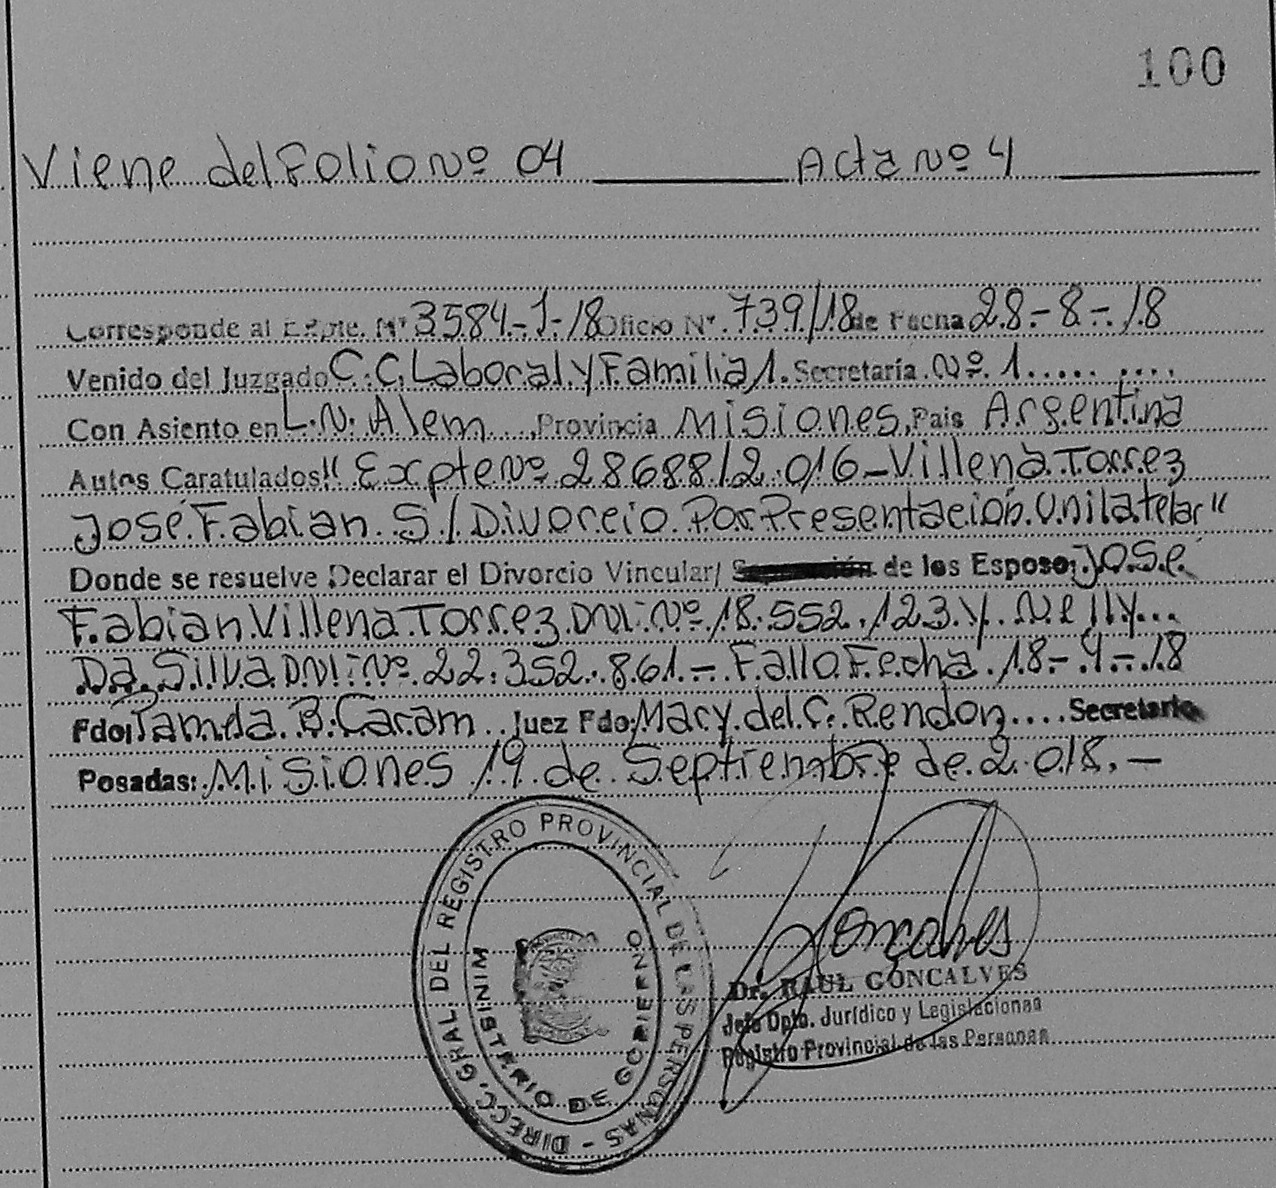 100
Viene del Folio Nº 04 Acta Nº 4
Corresponde al Expte. Nº 3584-1-18 Oficio Nº 739/18 de Fecha 28-8-18
Venido del Juzgado C.C. Laboral y Familia 1. Secretaría Nº 1
Con Asiento en L.N. Alem, Provincia Misiones, Pais Argentina
Autos Caratulados: " Expte Nº 28688/2.016 - Villena Torrez
José Fabian S/ Divorcio Por Presentación Unilateral"
Donde se resuelve Declarar el Divorcio Vincular/ Separación de los Esposo: José
Fabian Villena Torrez DNI: Nº 18.552.123 y Nelly
Da Silva DNI: Nº 22.352.861.- Fallo Fecha 18-4-18
Fdo: Pamela B. Caram Juez Fdo: Macy del C. Rendon Secretario
Posadas: Misiones 19 de Septiembre de 2.018.-
DIRECC. GRAL DEL REGISTRO PROVINCIAL DE LAS PERSONAS -
MINISTERIO DE GOBIERNO
Goncalves
Dr. RAUL GONCALVES
Jefe Dpto. Jurídico y Legislaciones
Registro Provincial de las Personas